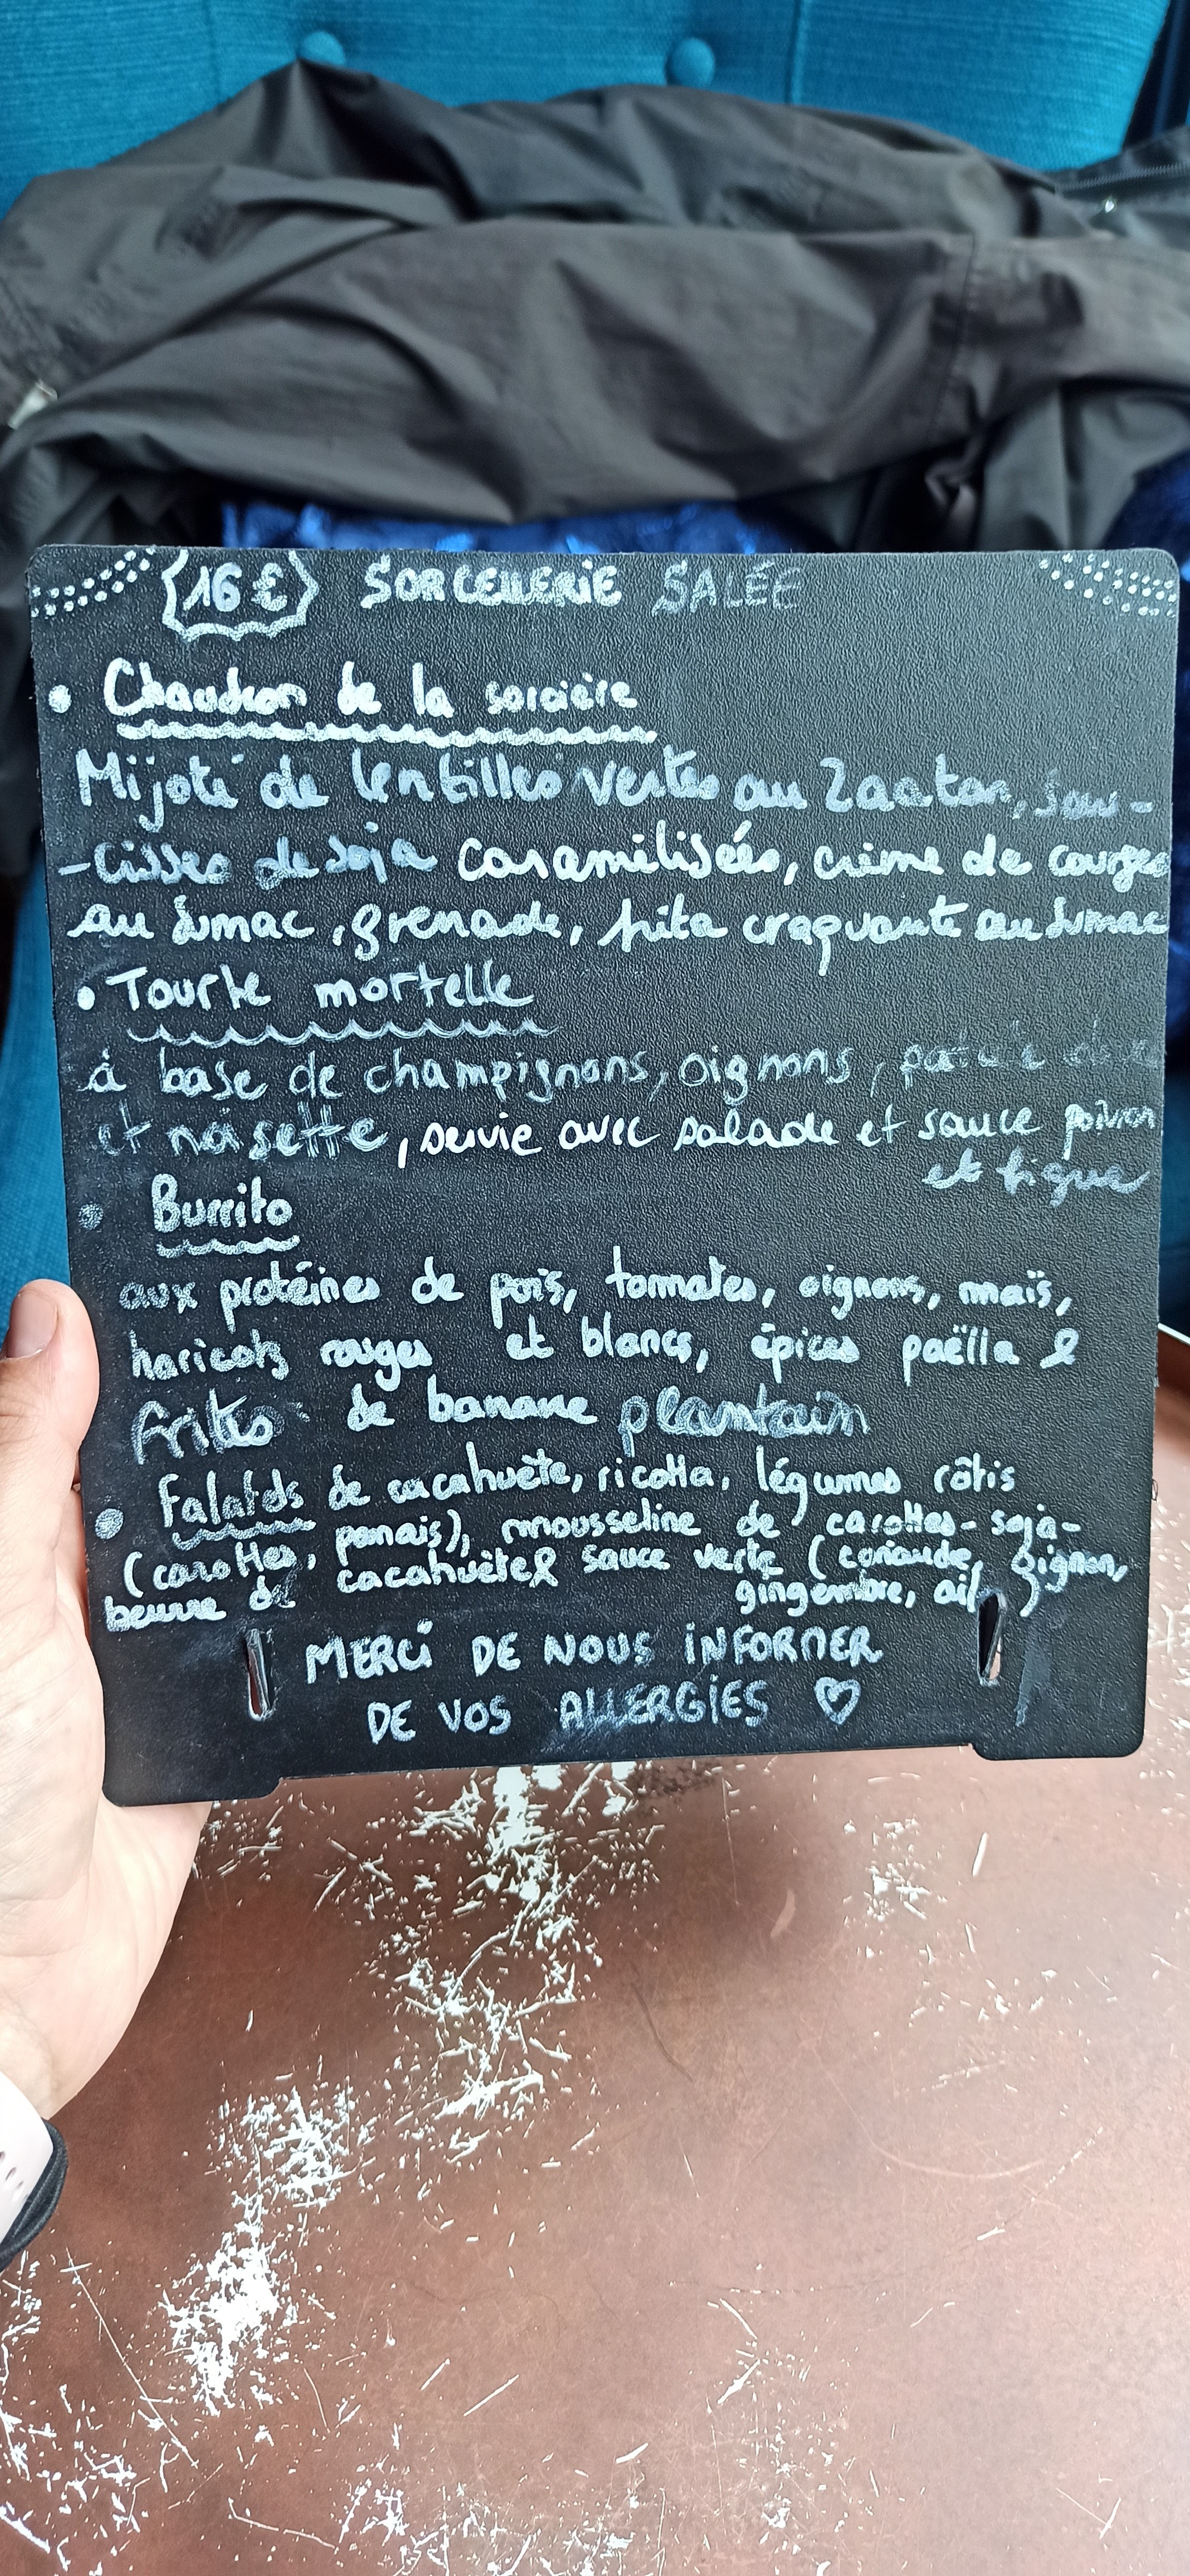 16€ SORCELLERIE SALÉE
• Chaudron de la sorcière
Mijoté de lentilles vertes au Zaatar, sau-
-cisses de soja caramélisées, crème de courges
au sumac, grenade, pita craquante au sumac
• Tourte mortelle
à base de champignons, oignons,
et noisette, servie avec salade et sauce poivron
et figue
• Burrito
aux protéines de pois, tomates, oignons, maïs,
haricots rouges et blancs, épices paëlla &
frites de banane plantain
• Falafels de cacahuète, ricotta, légumes rôtis
(carottes, panais), mousseline de carottes-soja-
beurre de cacahuète & sauce verte (coriande, oignon,
gingembre, ail)
MERCI DE NOUS INFORMER
DE VOS ALLERGIES ♡